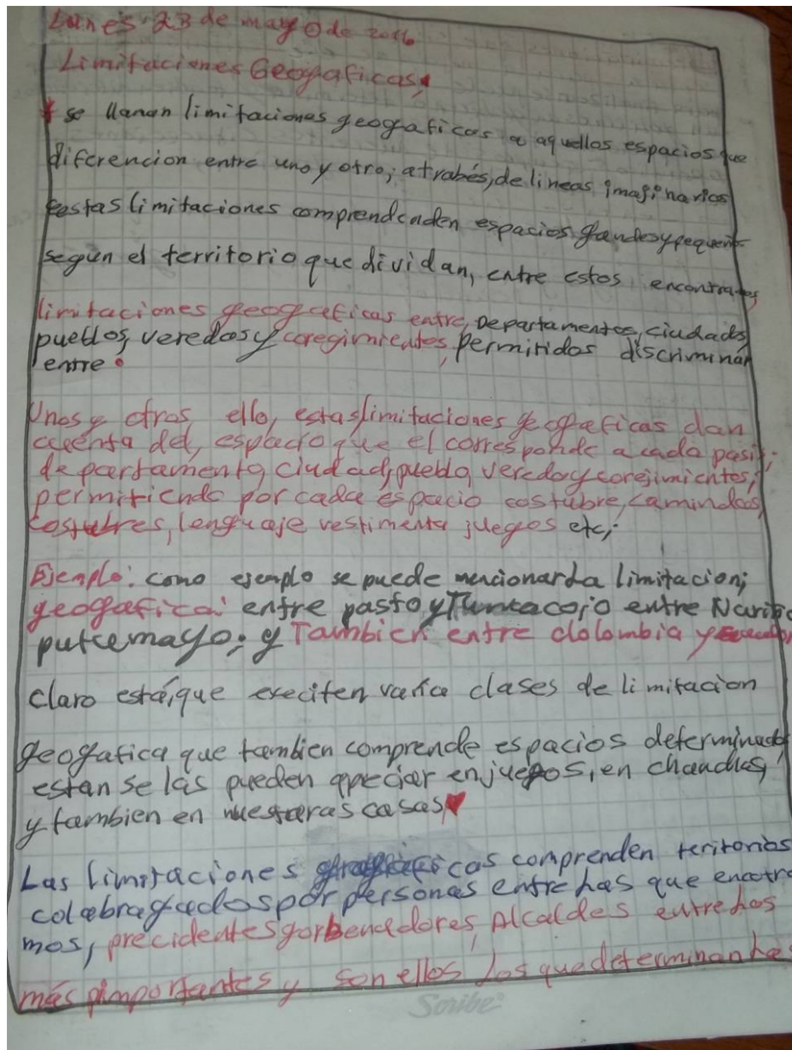 Lunes 23 de mayo de 2016
Limitaciones Geografica
* se llaman limitaciones geograficas a aquellos espacios que
diferencion entre uno y otro; atrabés, de lineas imaginarias
estas limitaciones comprendenden espacios grandes y pequeñ
según el territorio que dividan, entre estos encontramos
limitaciones geograficas entre, Departamentos, ciudads,
pueblos, veredas y coregimientos, permitidos discriminar
entre.
Unos y otros ello, estas limitaciones geograficas dan
cuenta del, espacio que el corresponde a cada pasis;
departamento, ciudad, pueblo, veredo y corejimientes;
permitiendo por cada espacio costubre, camindas,
costubres, lenguaje vestimenta juegos etc;
Ejemplo: como ejemplo se puede mencionar la limitacion;
geogafica: entre pasto y entre Nariño
putcemayo; y Tambien entre clolombia y
claro está, que execiten varia clases de limitacion
geogafica que tambien comprende espacios determinados
estan se las pueden apreciar en juegos, en chanchas,
y tambien en nuestaras casas
Las limitaciones comprenden teritorios
por personas entre has que encotra
mos, precidentes gorbenadores, Alcaldes entre hos
más pimportantes y son ellos los que determinan ha
Scribe